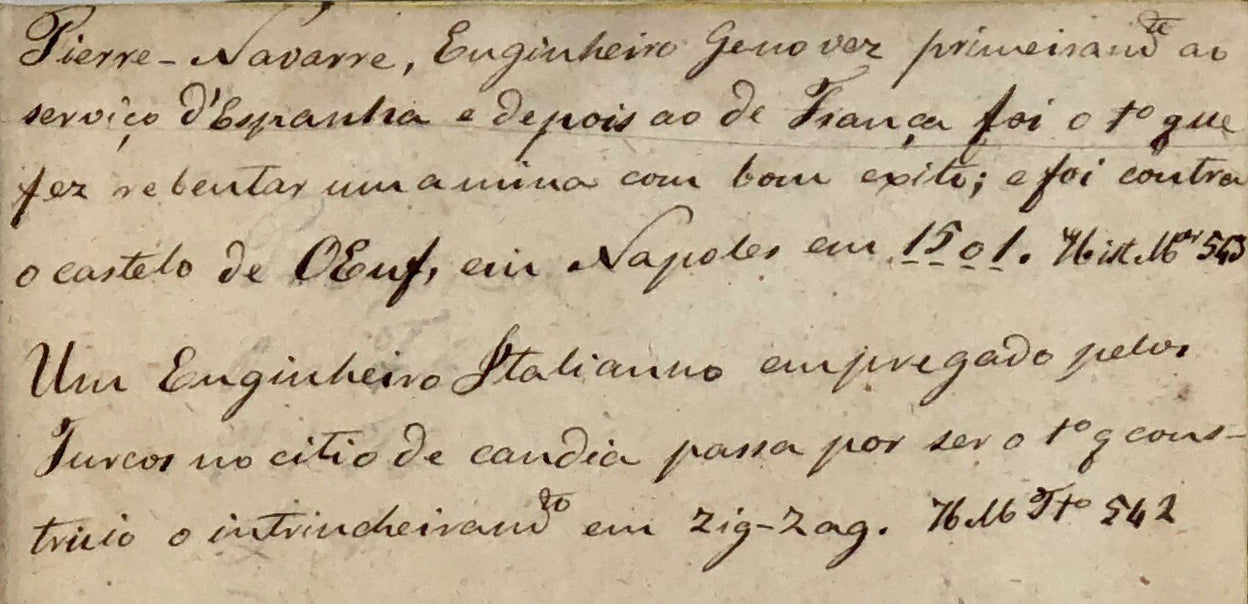 Pierre-Navarre, Enginheiro Genovez primeiramte ao
serviço d'Espanha e depois ao de França foi o 1º que
fez rebentar uma mina com bom exito; e foi contra
o castelo de OEuf, em Napoles em 1501. Hist. Mar 543
Um Enginheiro Italianno empregado pelos
Turcos no citio de candia passa por ser o 1º q cons-
truio o intrincheiramto em zig-zag. H. M 542